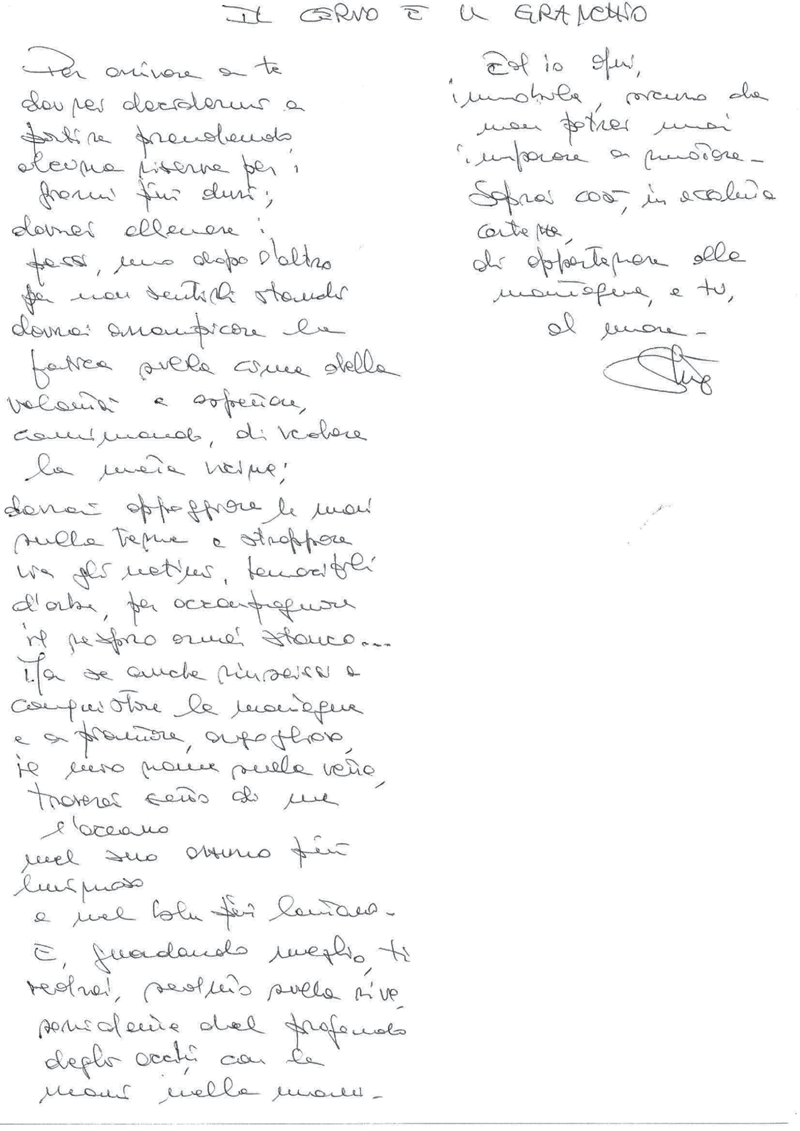 IL CERVO E IL GRANCHIO
Per arrivare a te
dovrei decidermi a
partire prendendo
alcuna riserva per i
giorni più duri;
dovrei allenare i
passi, uno dopo l'altro
per non sentirli stanchi
dovrei arrampicare la
fatica sulla cima della
volontà e aspettare,
camminando, di vedere
la meta vicina;
dovrei appoggiare le mani
sulla terra e strappare
via gli ultimi, 
d'erba, per accompagnare
il respiro ormai stanco...
Ma se anche riuscissi a
conquistare la montagna
e a piantare, orgoglioso,
il mio nome sulla vetta,
troverei sotto di me
l'oceano
nel suo  più
luminoso
e nel blu più lontano -
E, guardando meglio, ti
vedrei, seduto sulla riva,
 dal profondo
degli occhi con le
mani nelle mani -
Ed io qui,
immobile, sicuro che
non potrei mai
imparare a nuotare -
Saprei così, in assoluta
certezza,
di appartenere alla
montagna, e tu,
al mare -